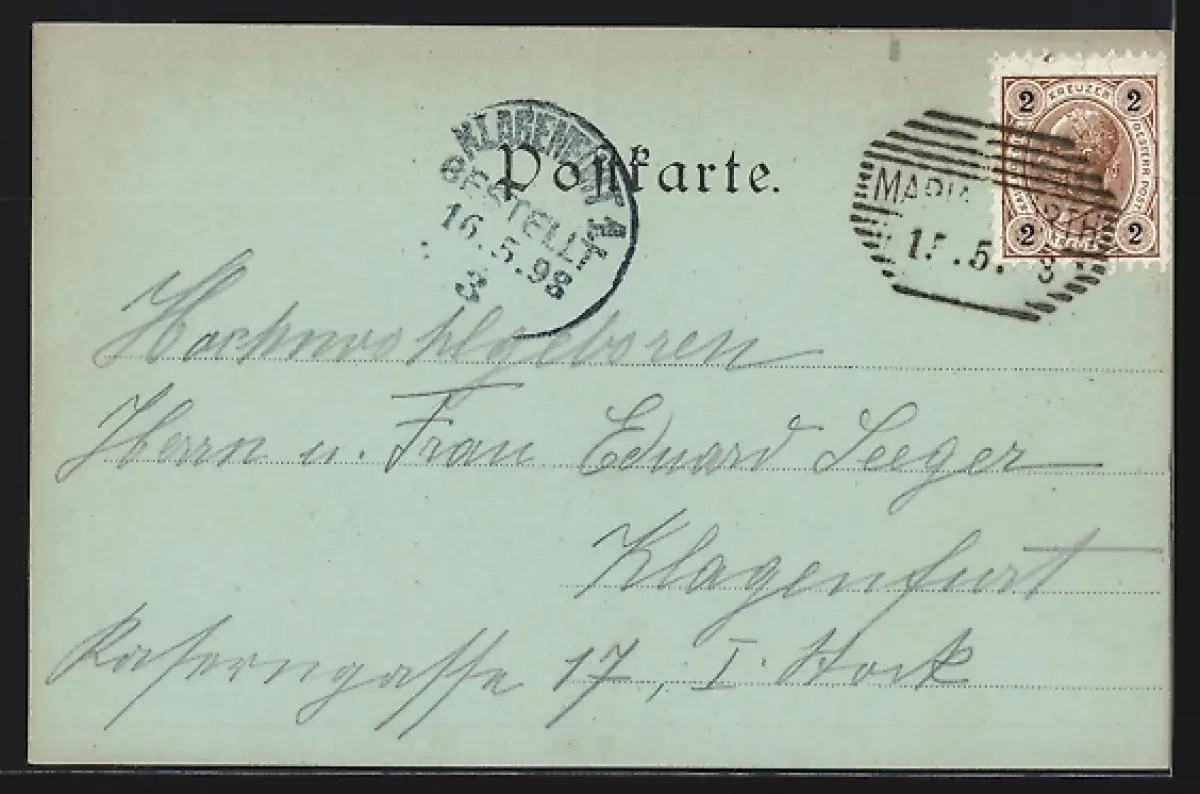 Postkarte.
KLAGENFURT 1
BESTELLT
16.5.98
3
2 KREUZER 2
OESTERR. POST
2 2
MARIA RTH
5.
Hochwohlgeboren
Herrn u. Frau Eduard Seeger
Klagenfurt
Kaserngasse 17, I. Stock